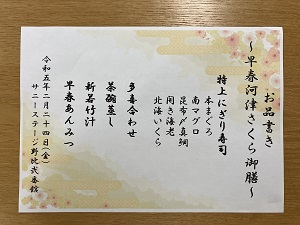 お品書き
～早春河津さくら御膳～
特上にぎり寿司
本まぐろ
南マグロ
昆布〆真鯛
開き海老
北海いくら
多喜合わせ
茶碗蒸し
新若竹汁
早春あんみつ
令和五年二月二十四日(金)
サニーステージ野比弐番館